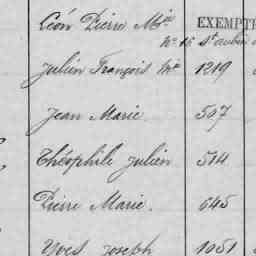 Léon Pierre Mie EXEMPT
No 15 St aubin
Julien François Mie 1219
Jean Marie 567
Théophile Julien 514
Pierre Marie. 645
Yves Joseph 1051